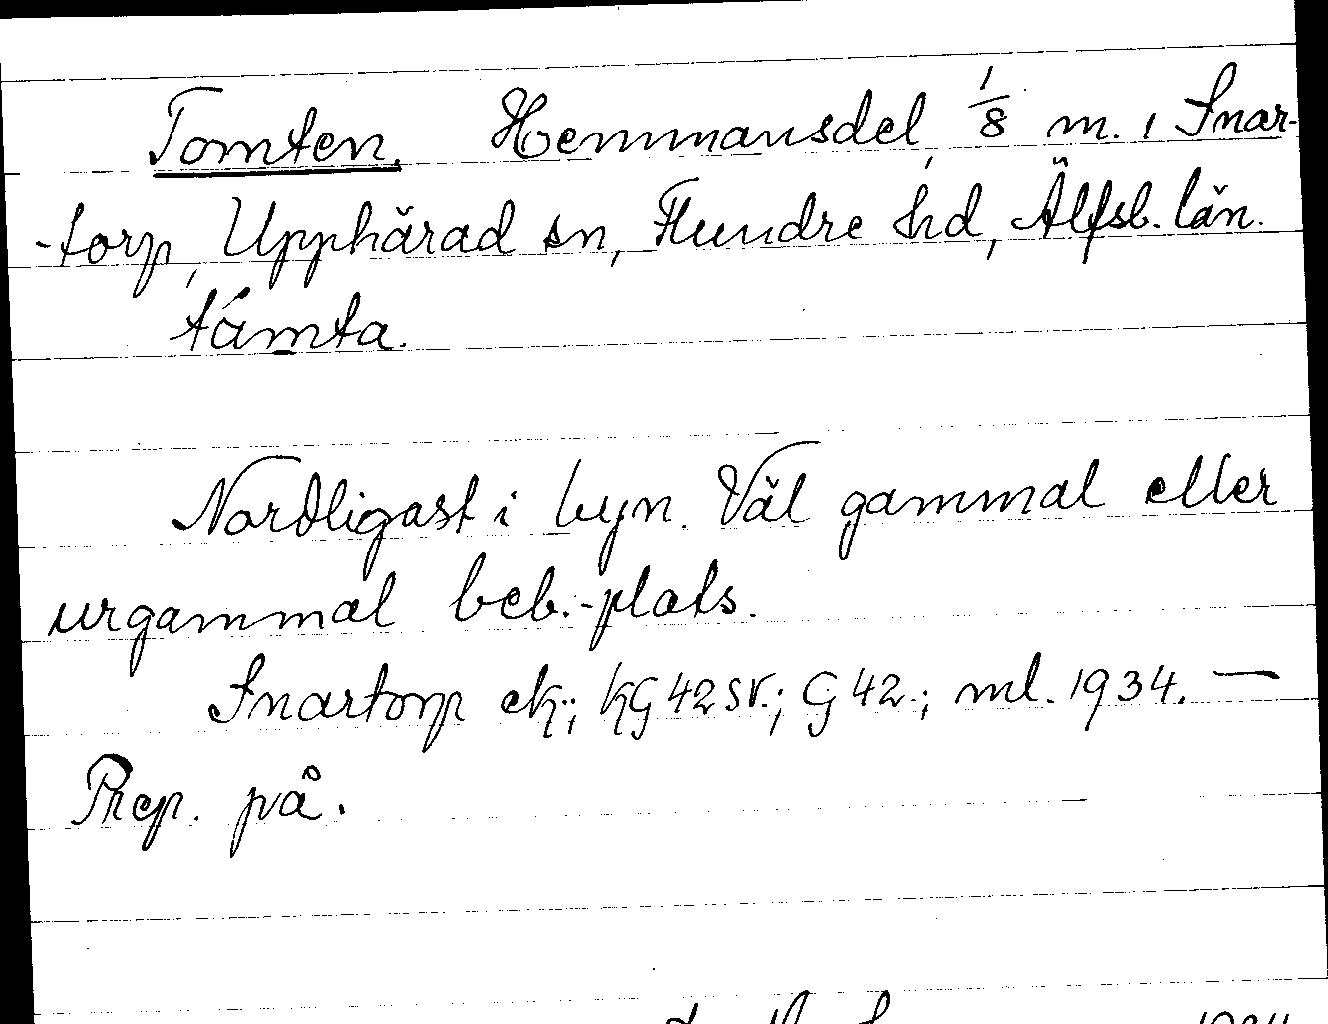 Tomten. Hemmansdel 1/8 m. i Snar-
-torp, Upphärad sn, Flundre hd, Älfsb. län.
támta.
Nordligast i byn. Väl gammal eller
urgammal beb.-plats.
Snartorp ek.; KG 42 SV.; G 42.; ml. 1934. —
Prep. på.